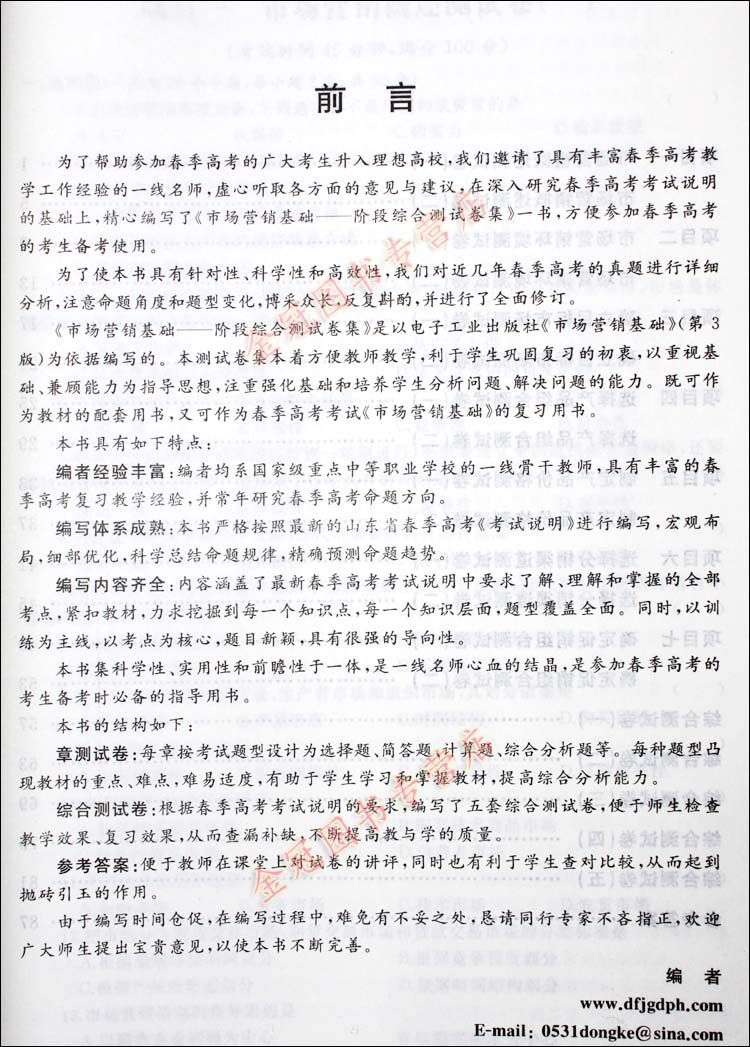 前言
为了帮助参加春季高考的广大考生升入理想高校,我们邀请了具有丰富春季高考教
学工作经验的一线名师,虚心听取各方面的意见与建议,在深入研究春季高考考试说明
的基础上,精心编写了《市场营销基础——阶段综合测试卷集》一书,方便参加春季高考
的考生备考使用。
为了使本书具有针对性、科学性和高效性,我们对近几年春季高考的真题进行详细
分析,注意命题角度和题型变化,博采众长,反复斟酌,并进行了全面修订。
《市场营销基础——阶段综合测试卷集》是以电子工业出版社《市场营销基础》(第3
版)为依据编写的。本测试卷集本着方便教师教学,利于学生巩固复习的初衷,以重视基
础、兼顾能力为指导思想,注重强化基础和培养学生分析问题、解决问题的能力。既可作
为教材的配套用书,又可作为春季高考考试《市场营销基础》的复习用书。
本书具有如下特点:
编者经验丰富:编者均系国家级重点中等职业学校的一线骨干教师,具有丰富的春
季高考复习教学经验,并常年研究春季高考命题方向。
编写体系成熟:本书严格按照最新的山东省春季高考《考试说明》进行编写,宏观布
局,细部优化,科学总结命题规律,精确预测命题趋势。
编写内容齐全:内容涵盖了最新春季高考考试说明中要求了解、理解和掌握的全部
考点,紧扣教材,力求挖掘到每一个知识点,每一个知识层面,题型覆盖全面。同时,以训
练为主线,以考点为核心,题目新颖,具有很强的导向性。
本书集科学性、实用性和前瞻性于一体,是一线名师心血的结晶,是参加春季高考的
考生备考时必备的指导用书。
本书的结构如下:
章测试卷:每章按考试题型设计为选择题、简答题、计算题、综合分析题等。每种题型凸
现教材的重点、难点,难易适度,有助于学生学习和掌握教材,提高综合分析能力。
综合测试卷:根据春季高考考试说明的要求,编写了五套综合测试卷,便于师生检查
教学效果、复习效果,从而查漏补缺,不断提高教与学的质量。
参考答案:便于教师在课堂上对试卷的讲评,同时也有利于学生查对比较,从而起到
抛砖引玉的作用。
由于编写时间仓促,在编写过程中,难免有不妥之处,恳请同行专家不吝指正,欢迎
广大师生提出宝贵意见,以使本书不断完善。
编者
www.dfjgdph.com
E-mail:0531dongke@sina.com
金冠图书专营店
金冠图书专营店